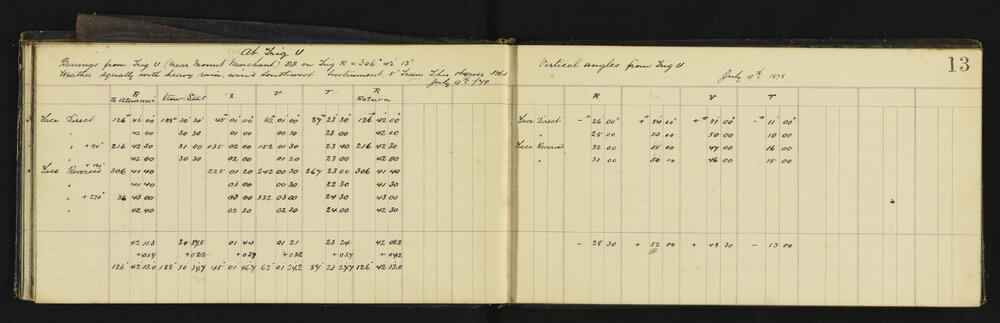 At Trig U
Bearings from Trig U (near Mount Marchant) on Trig R = 306° 42' 13"
Weather squally with heavy rain, wind Southwest Instrument 5" Tran
July 9th / 78
R Stat X V T R Return
Face Direct 126° 42' 00" 188° 30' 30" 45° 01' 00" 62° 01' 00" 87° 23' 30" 126° 42' 00"
" 42 00 30 30 01 00 00 30 23 00 42 00
" +90° 216 42 30 31 00 135 02 00 152 01 30 23 40 216 42 30
" 42 00 30 30 02 00 01 20 23 00 42 00
Face Reversed +180° 306 41 40 225 01 20 242 00 30 267 23 00 306 41 40
" 41 40 03 00 00 30 22 30 41 30
" +270° 36 43 00 03 00 332 03 00 24 30 43 00
" 42 40 02 30 02 30 24 00 42 30
42 11.3 30 01 44 01 21 23 24 42 08.8
126° 42 13.0 188 30 39.7 45° 01 46.7 62° 01 24.2 87° 23 126° 42 13.0
13
Vertical angles from Trig U
July 9th 1878
R V T
Face Direct - ° 26' 00" + ° 54' 00" + ° 51' 00" - ° 11' 00"
" 25 00 53 00 50 00 10 00
Face Reversed 32 00 51 00 47 00 16 00
" 31 00 50 00 46 00 15 00
- 28 30 + 52 00 + 48 30 - 13 00